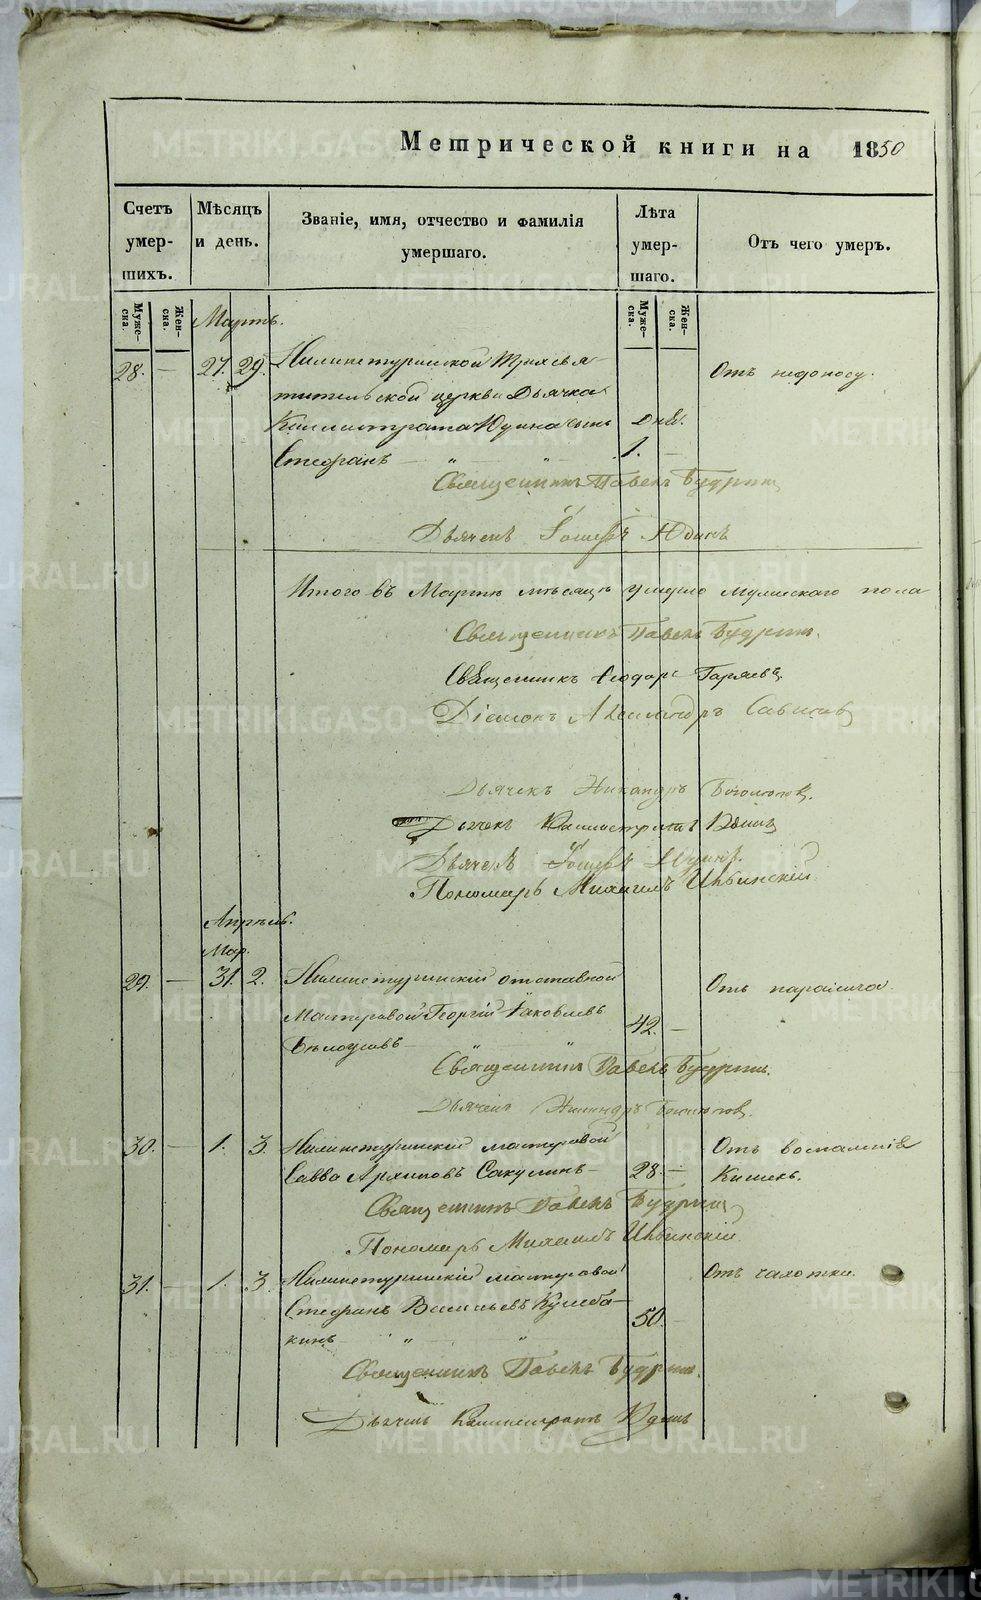 Метрической книги на 1850
Счетъ умер-шихъ.
Мѣсяцъ и день.
Званіе, имя, отчество и фамилія умершаго.
Лѣта умер-шаго.
Отъ чего умеръ.
Муже-ска.
Жен-ска.
Мартъ.
Муже-ска.
Жен-ска.
28. — 27. 29. Нижнетуринской Трехсвя- Отъ недоносу.
тительской церкви Дьячка
Каллистрата Юдина сынъ дня.
Стефанъ — „ — „ 1. —
Священникъ Павелъ Будринъ
Дьячекъ Іосифъ Юдинъ
Итого въ Мартѣ мѣсяцѣ умерло мужескаго пола
Священникъ Павелъ Будринъ.
Священникъ Ѳеодоръ Гаряевъ
Діаконъ Александръ
Дьячекъ Никандръ
Дьячекъ Каллистратъ Юдинъ
Дьячекъ Іосифъ Юдинъ.
Пономарь Михаилъ Ивинскій
Апрѣль.
Мар.
29. — 31. 2. Нижнетуринскій отставной Отъ паралича.
Мастеровой Георгій Іаковлевъ 42. —
Бѣлоусовъ — „ „
Священникъ Павелъ Будринъ.
Дьячекъ Никандръ
30. — 1. 3. Нижнетуринскій мастеровой Отъ воспаленія
Савва Архиповъ Сакулинъ — 28. — Кишекъ.
Священникъ Павелъ Будринъ
Пономарь Михаилъ Ивинскій
31. — 1. 3. Нижнетуринскій мастеровой Отъ чахотки.
Стефанъ Васильевъ Кулеба- 50. —
кинъ — „ — „
Священникъ Павелъ Будринъ.
Дьячекъ Каллистратъ Юдинъ
METRIKI.GASO-URAL.RU